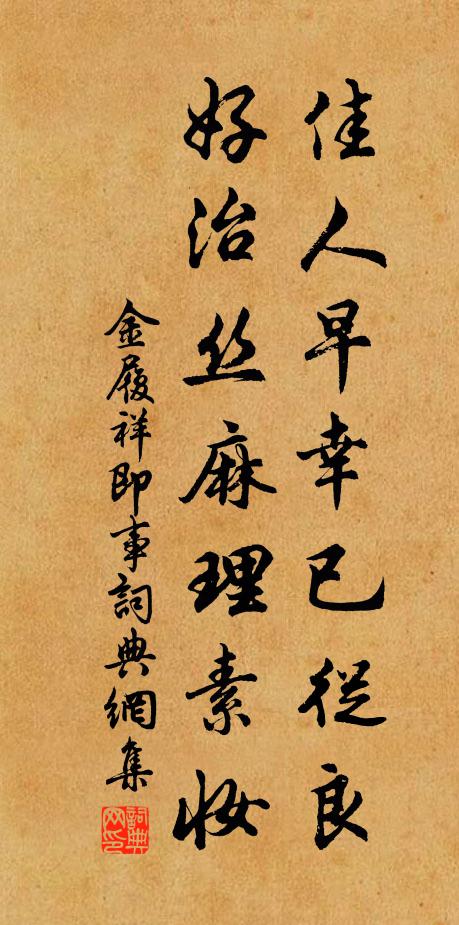 佳人早幸已從良
好治丝麻理素妝
金履祥即事詞典網集
詞典网印